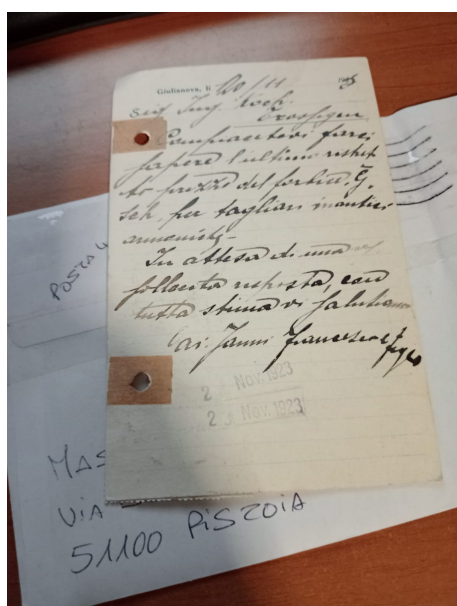 Giulianova, li 20/11 192
Sig. Ing. Koch.
Compiacetevi farci
sapere l'ultimo ristret
to prezzo del forbice G.
per tagliare mantici
armoniche -
In attesa di una
sollecita risposta, con
tutta stima vi salutiamo
Cav: Janni Francesco & figlo
2 Nov. 1923
2 Nov. 1923
Posta 4
MAS
VIA
51100 PISTOIA